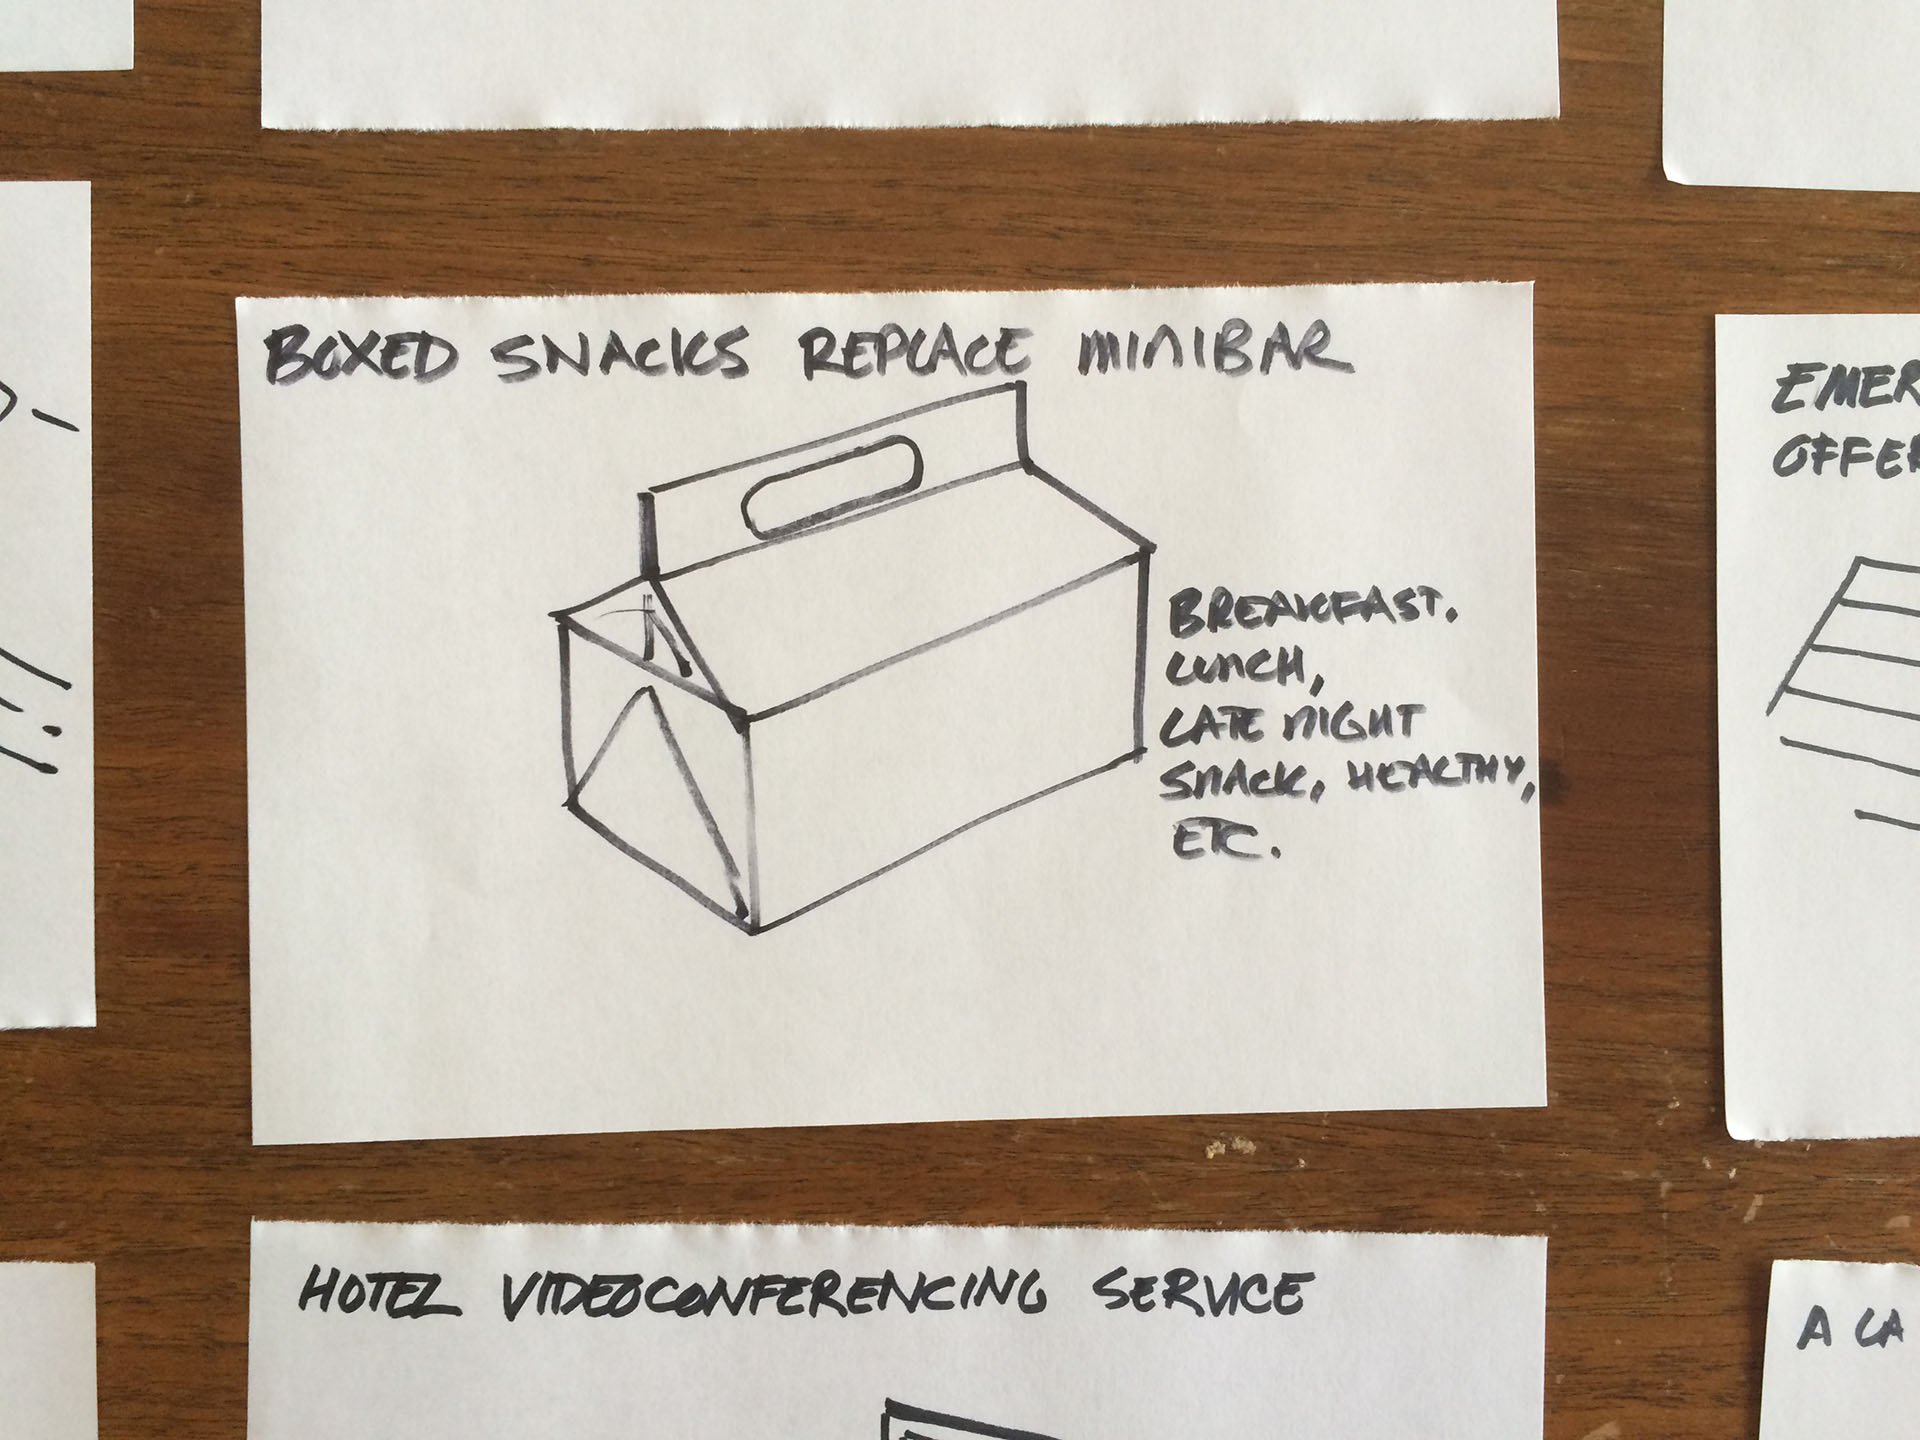 BOXED SNACKS REPLACE MINIBAR
BREAKFAST.
LUNCH,
LATE NIGHT
SNACK, HEALTHY,
ETC.
EMER
OFFER
HOTEL VIDEOCONFERENCING SERVICE
A LA